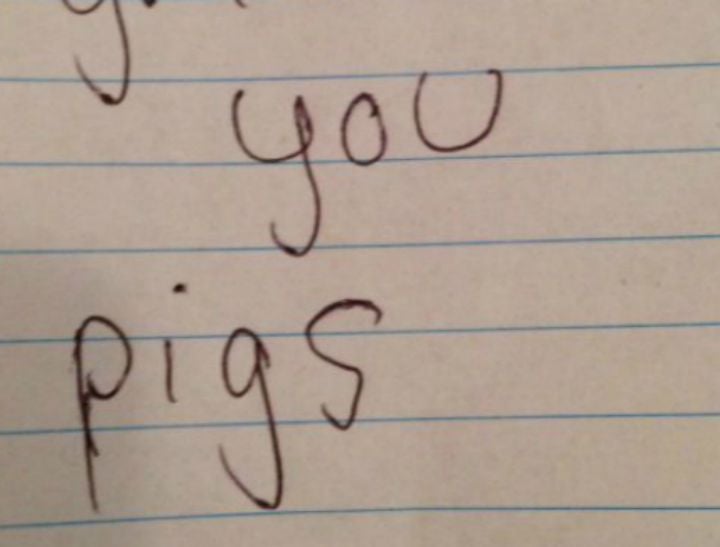 you
pigs